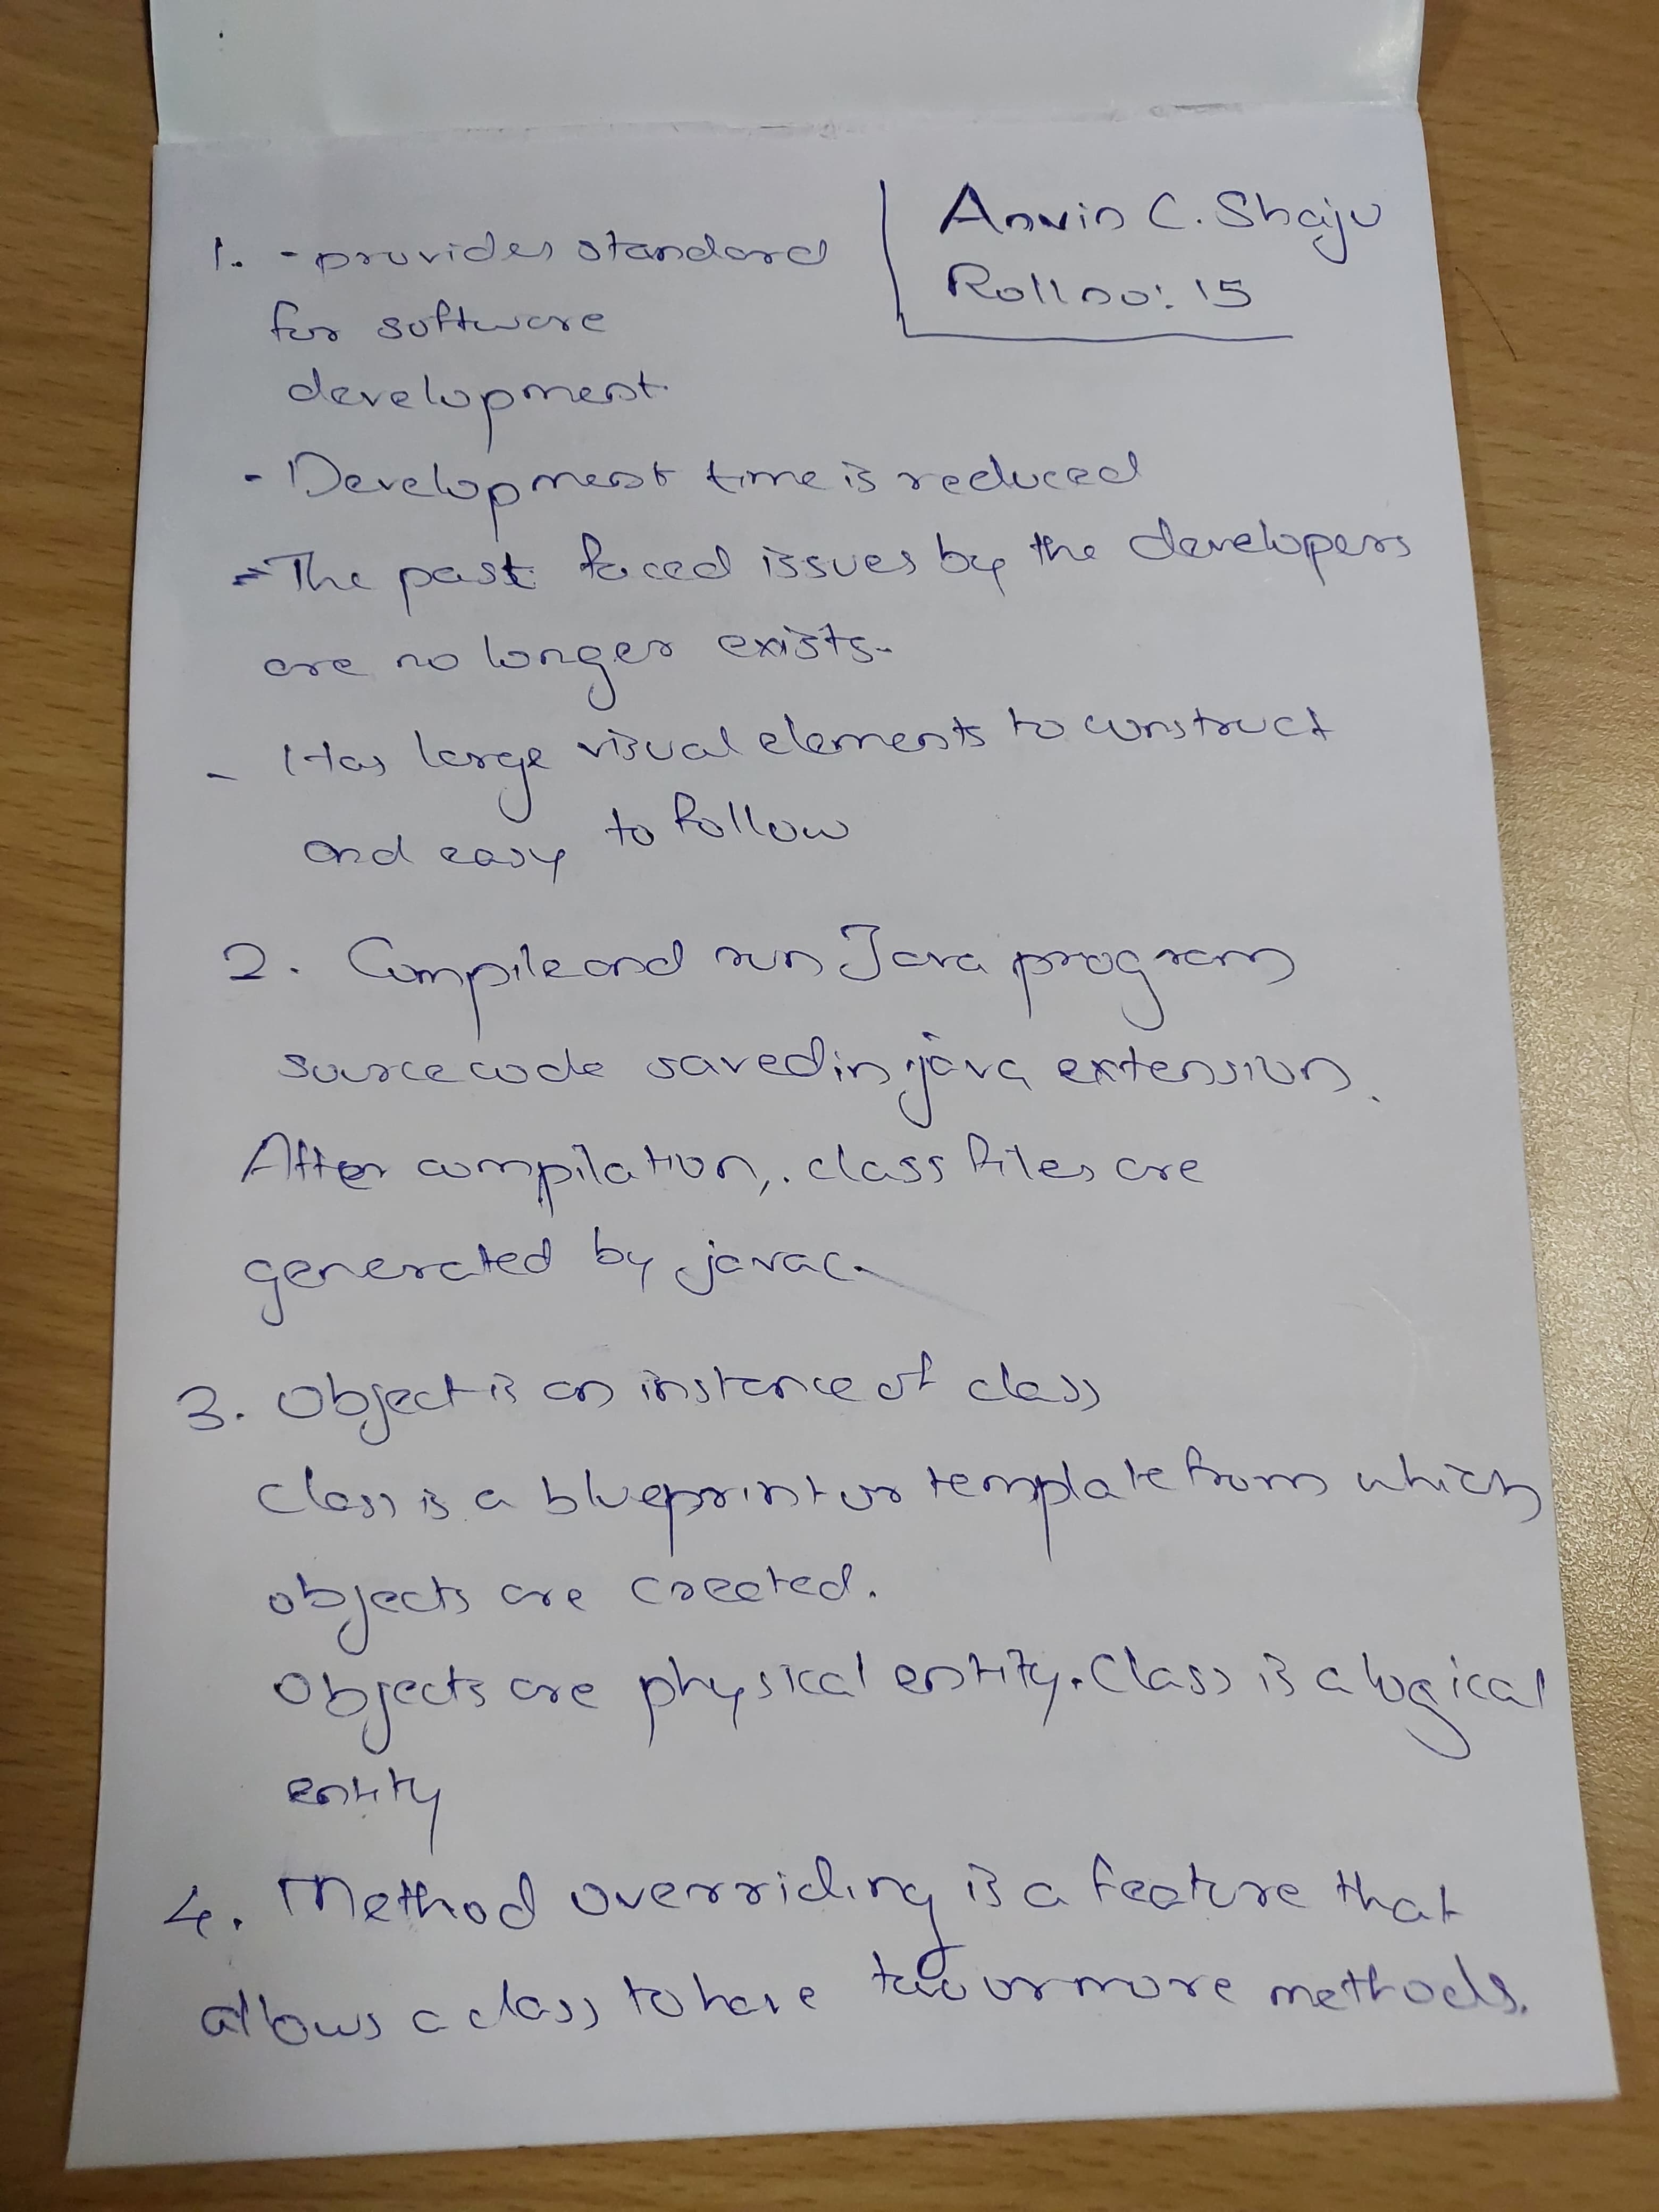 Anvin C. Shaju
Roll no: 15
1. - provides standard
for software
development.
- Development time is reduced
- The past faced issues by the developers
are no longer exists.
- Has large visual elements to construct
and easy to follow
2. Compile and run Java program
source code saved in .java extension.
After compilation, .class files are
generated by javac.
3. Object is an instance of class
Class is a blueprint or template from which
objects are created.
Objects are physical entity. Class is a logical
entity
4. Method overriding is a feature that
allows a class to have two or more methods.